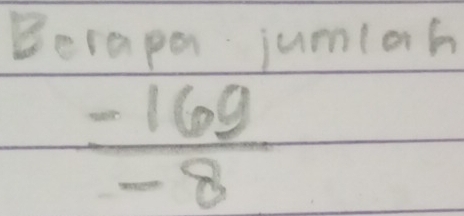 Berapa jumlah
-169
-8